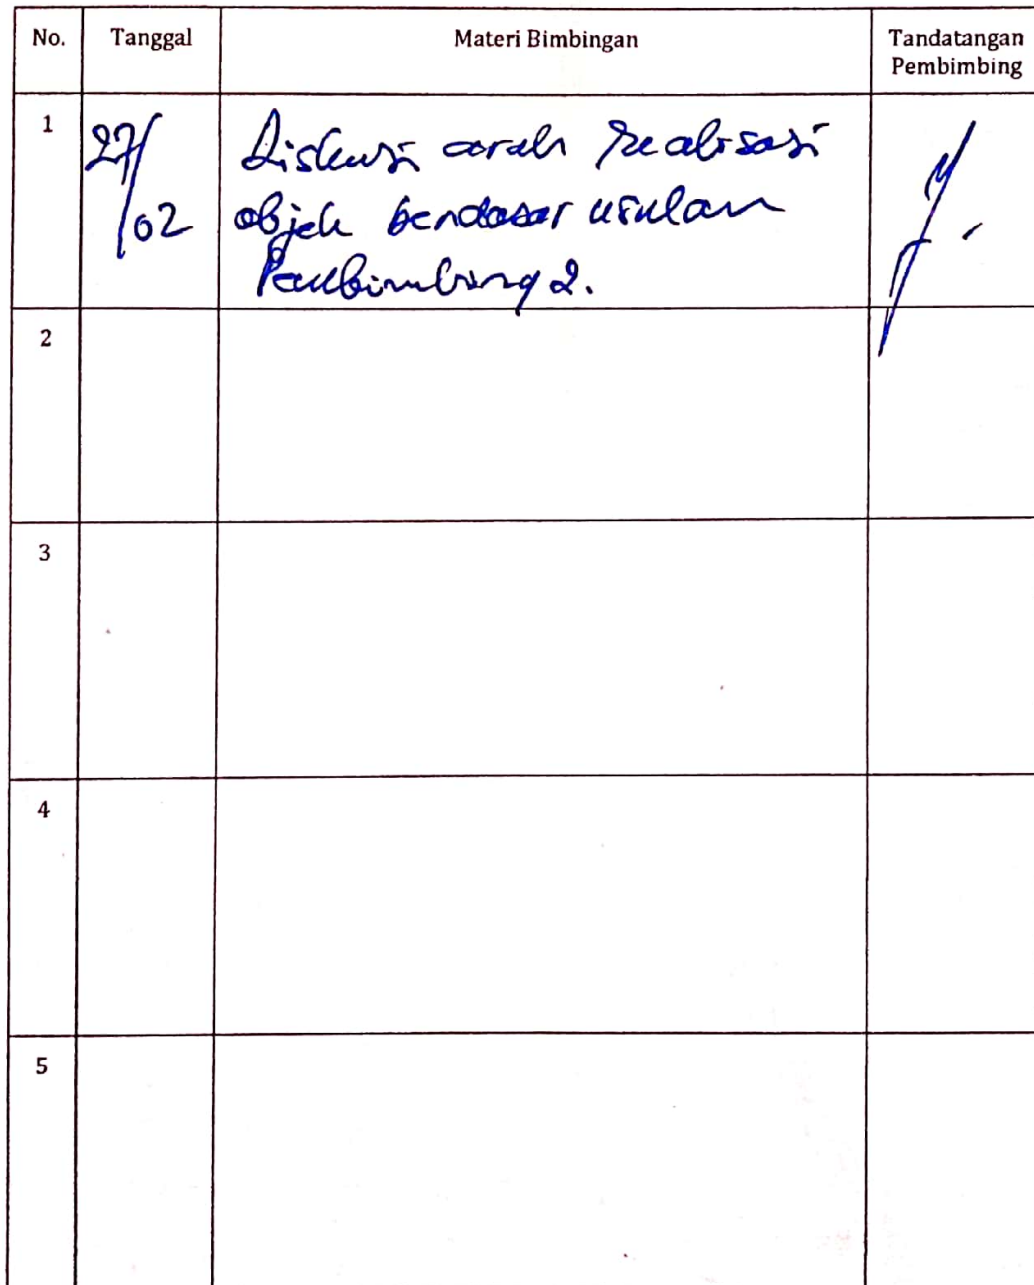 No. Tanggal Materi Bimbingan Tandatangan
Pembimbing
1 27/02 Diskusi arah realisasi
objek berdasar usulan
Pembimbing 2.
2
3
4
5